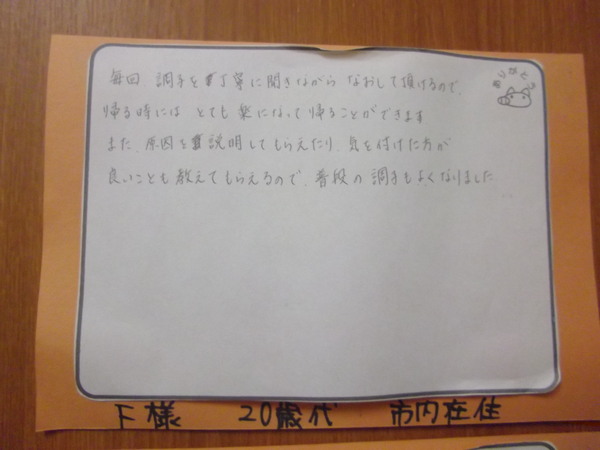 毎回 調子を丁寧に聞きながら なおして頂けるので、
帰る時には とても 楽になって 帰ることができます
また、原因を説明してもらえたり、気を付けた方が
良いことも 教えてもらえるので、普段の 調子もよくなりました
ありがとう
F様 20歳代 市内在住